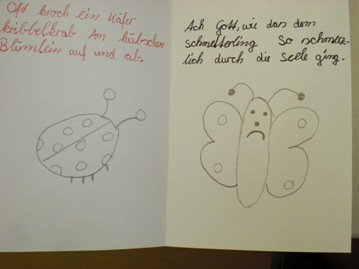 Oft kroch ein Käfer
kribbelkrab Am hübschen
Blümlein auf und ab.
Ach Gott, wie das dem
Schmetterling So schmerz-
lich durch die Seele ging.